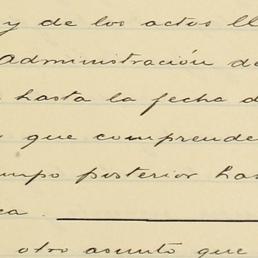 y de los actos ll
administración d
hasta la fecha d
que comprende
mpo posterior has
ca.
otro asunto que